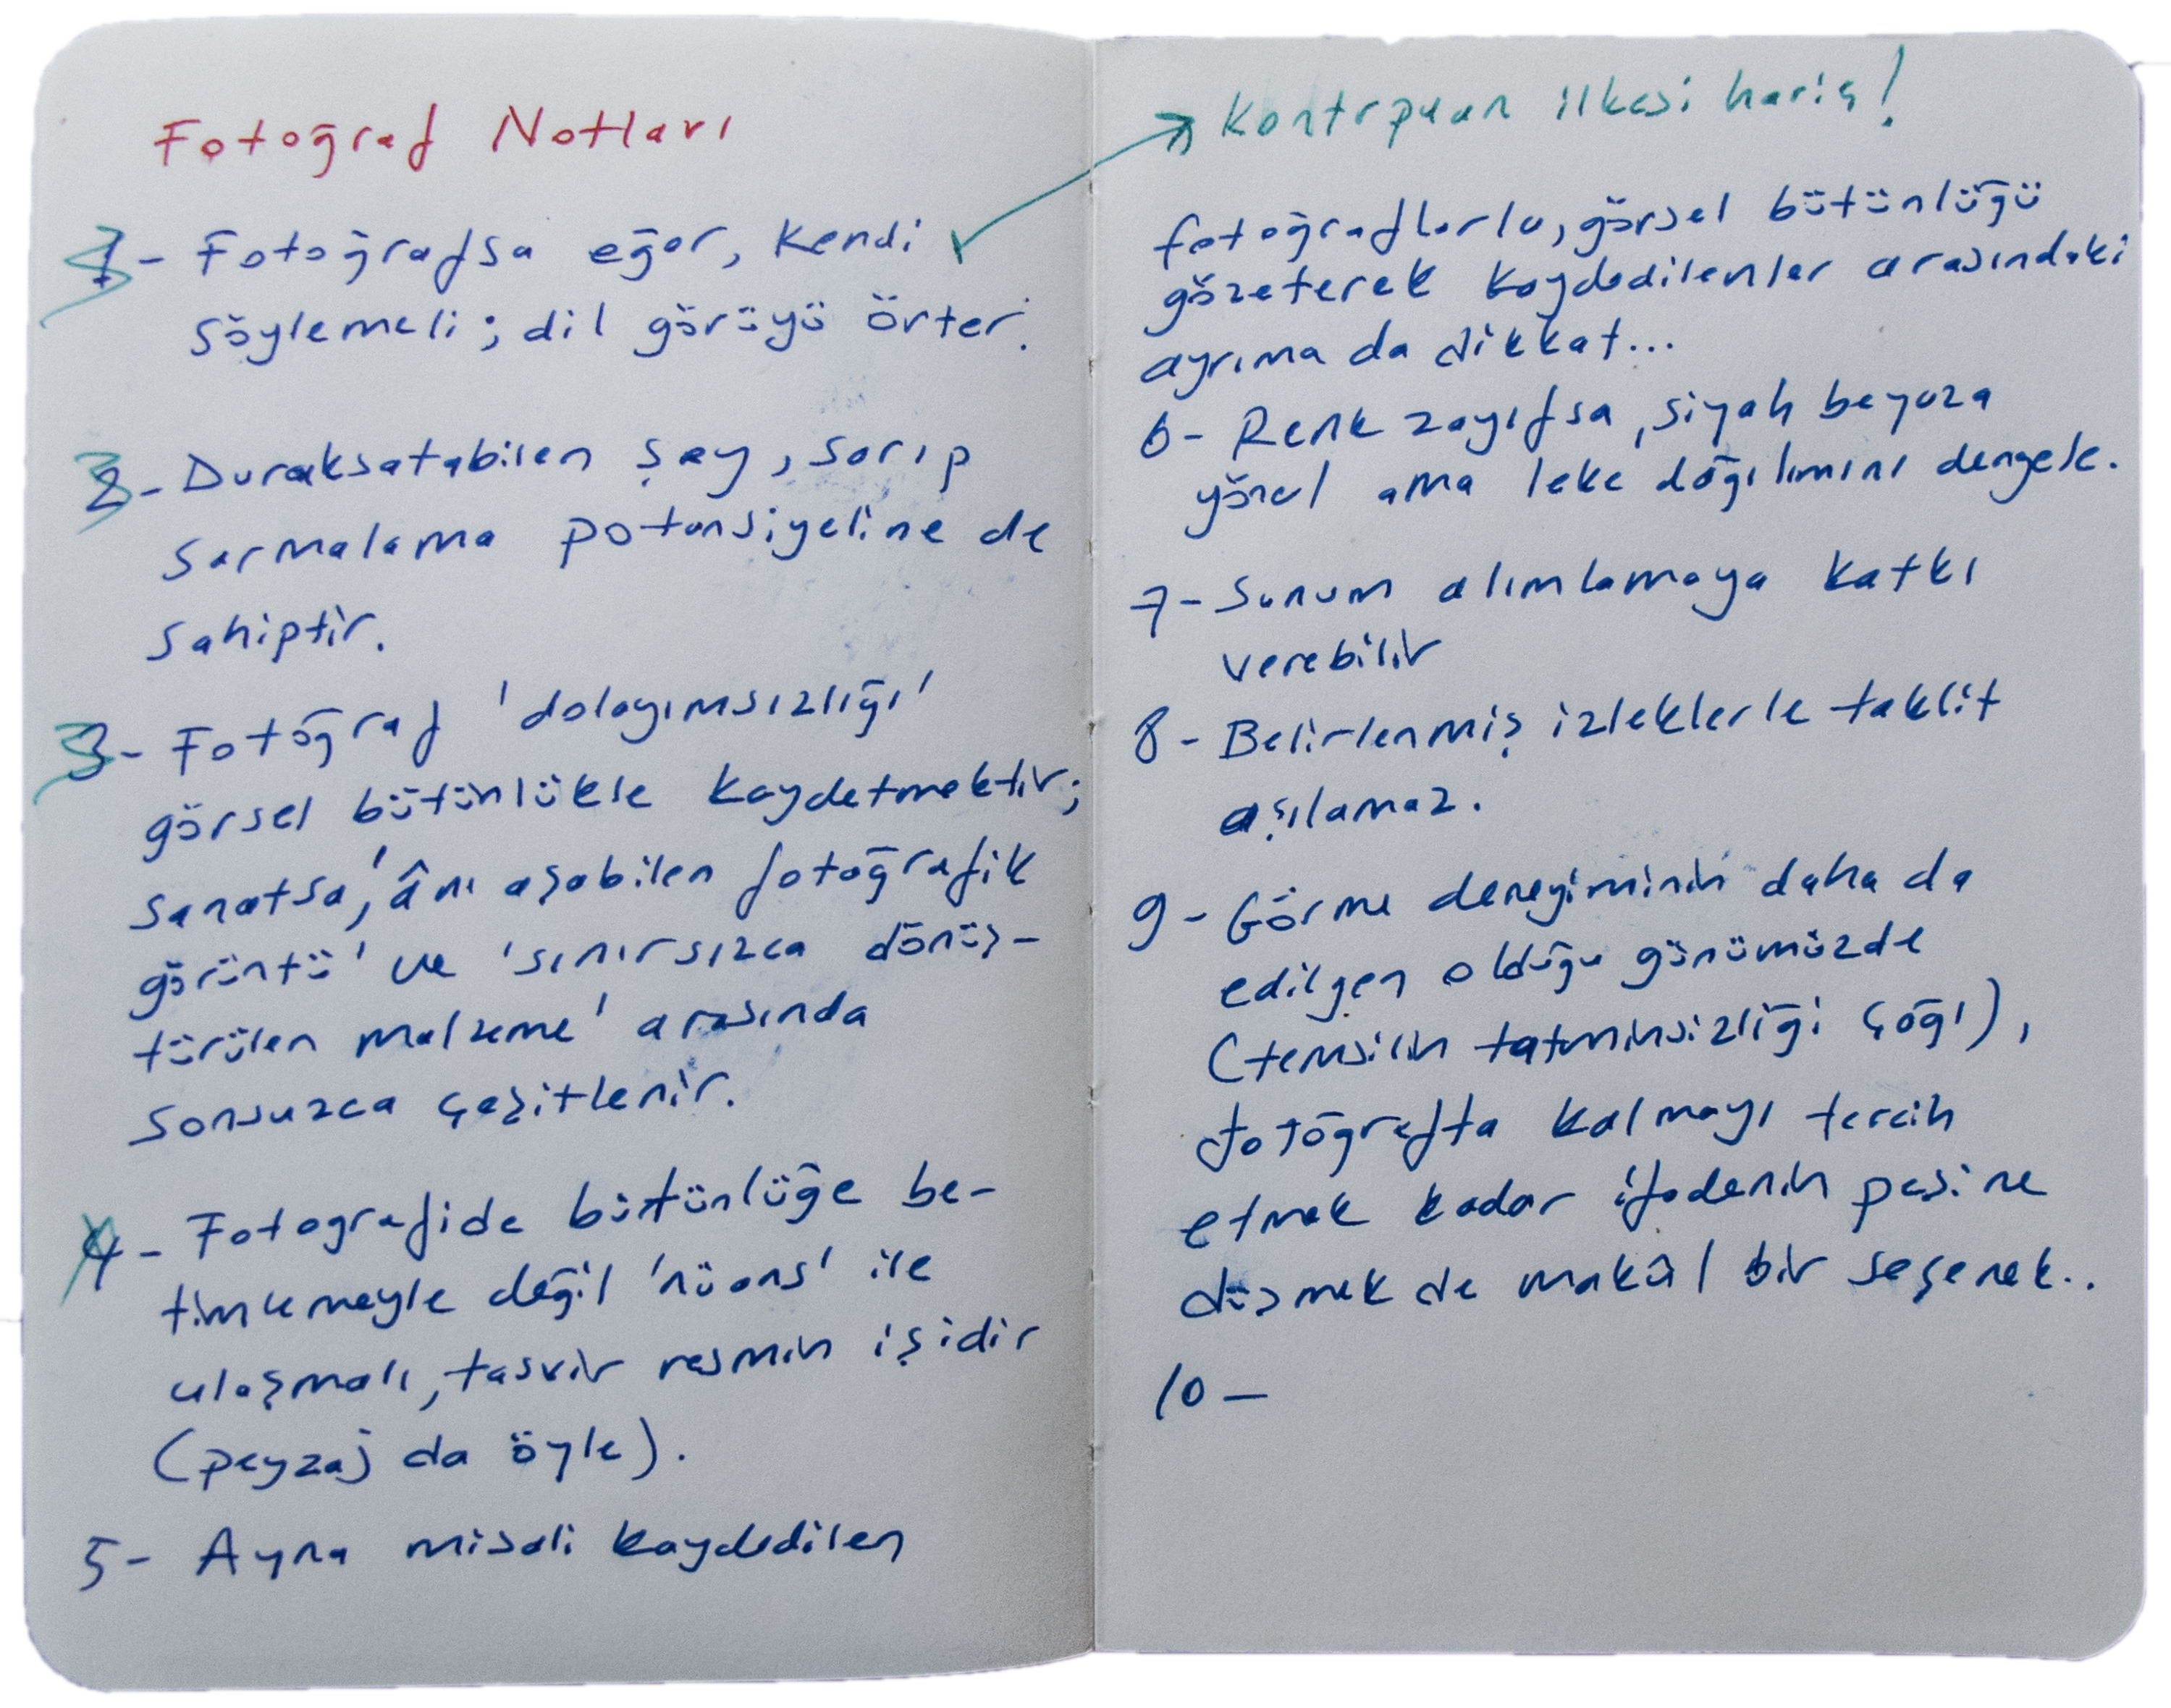 Fotoğraf Notları
1- Fotoğrafsa eğer, kendi
söylemeli; dil görüyü örter.
2- Duraksatabilen şey, sarıp
sarmalama potansiyeline de
sahiptir.
3- Fotoğraf 'dolayımsızlığı'
görsel bütünlükle kaydetmektir;
sanatsa, 'ânı aşabilen fotoğrafik
görüntü' ve 'sınırsızca dönüş-
türülen malzeme' arasında
sonsuzca çeşitlenir.
4- Fotografide bütünlüğe be-
timlemeyle değil 'nüans' ile
ulaşmalı, tasvir resmin işidir
(peyzaj da öyle).
5- Ayna misali kaydedilen
Kontrpuan ilkesi hariç!
fotoğraflarla, görsel bütünlüğü
gözeterek kaydedilenler arasındaki
ayrıma da dikkat...
6- Renk zayıfsa, siyah beyaza
yönel ama leke dağılımını dengele.
7- Sunum alımlamaya katkı
verebilir
8- Belirlenmiş izleklerle taklit
aşılamaz.
9- Görme deneyiminin daha da
edilgen olduğu günümüzde
(temsilin tatminsizliği çağı),
fotoğrafta kalmayı tercih
etmek kadar ifadenin peşine
düşmek de makûl bir seçenek..
10-